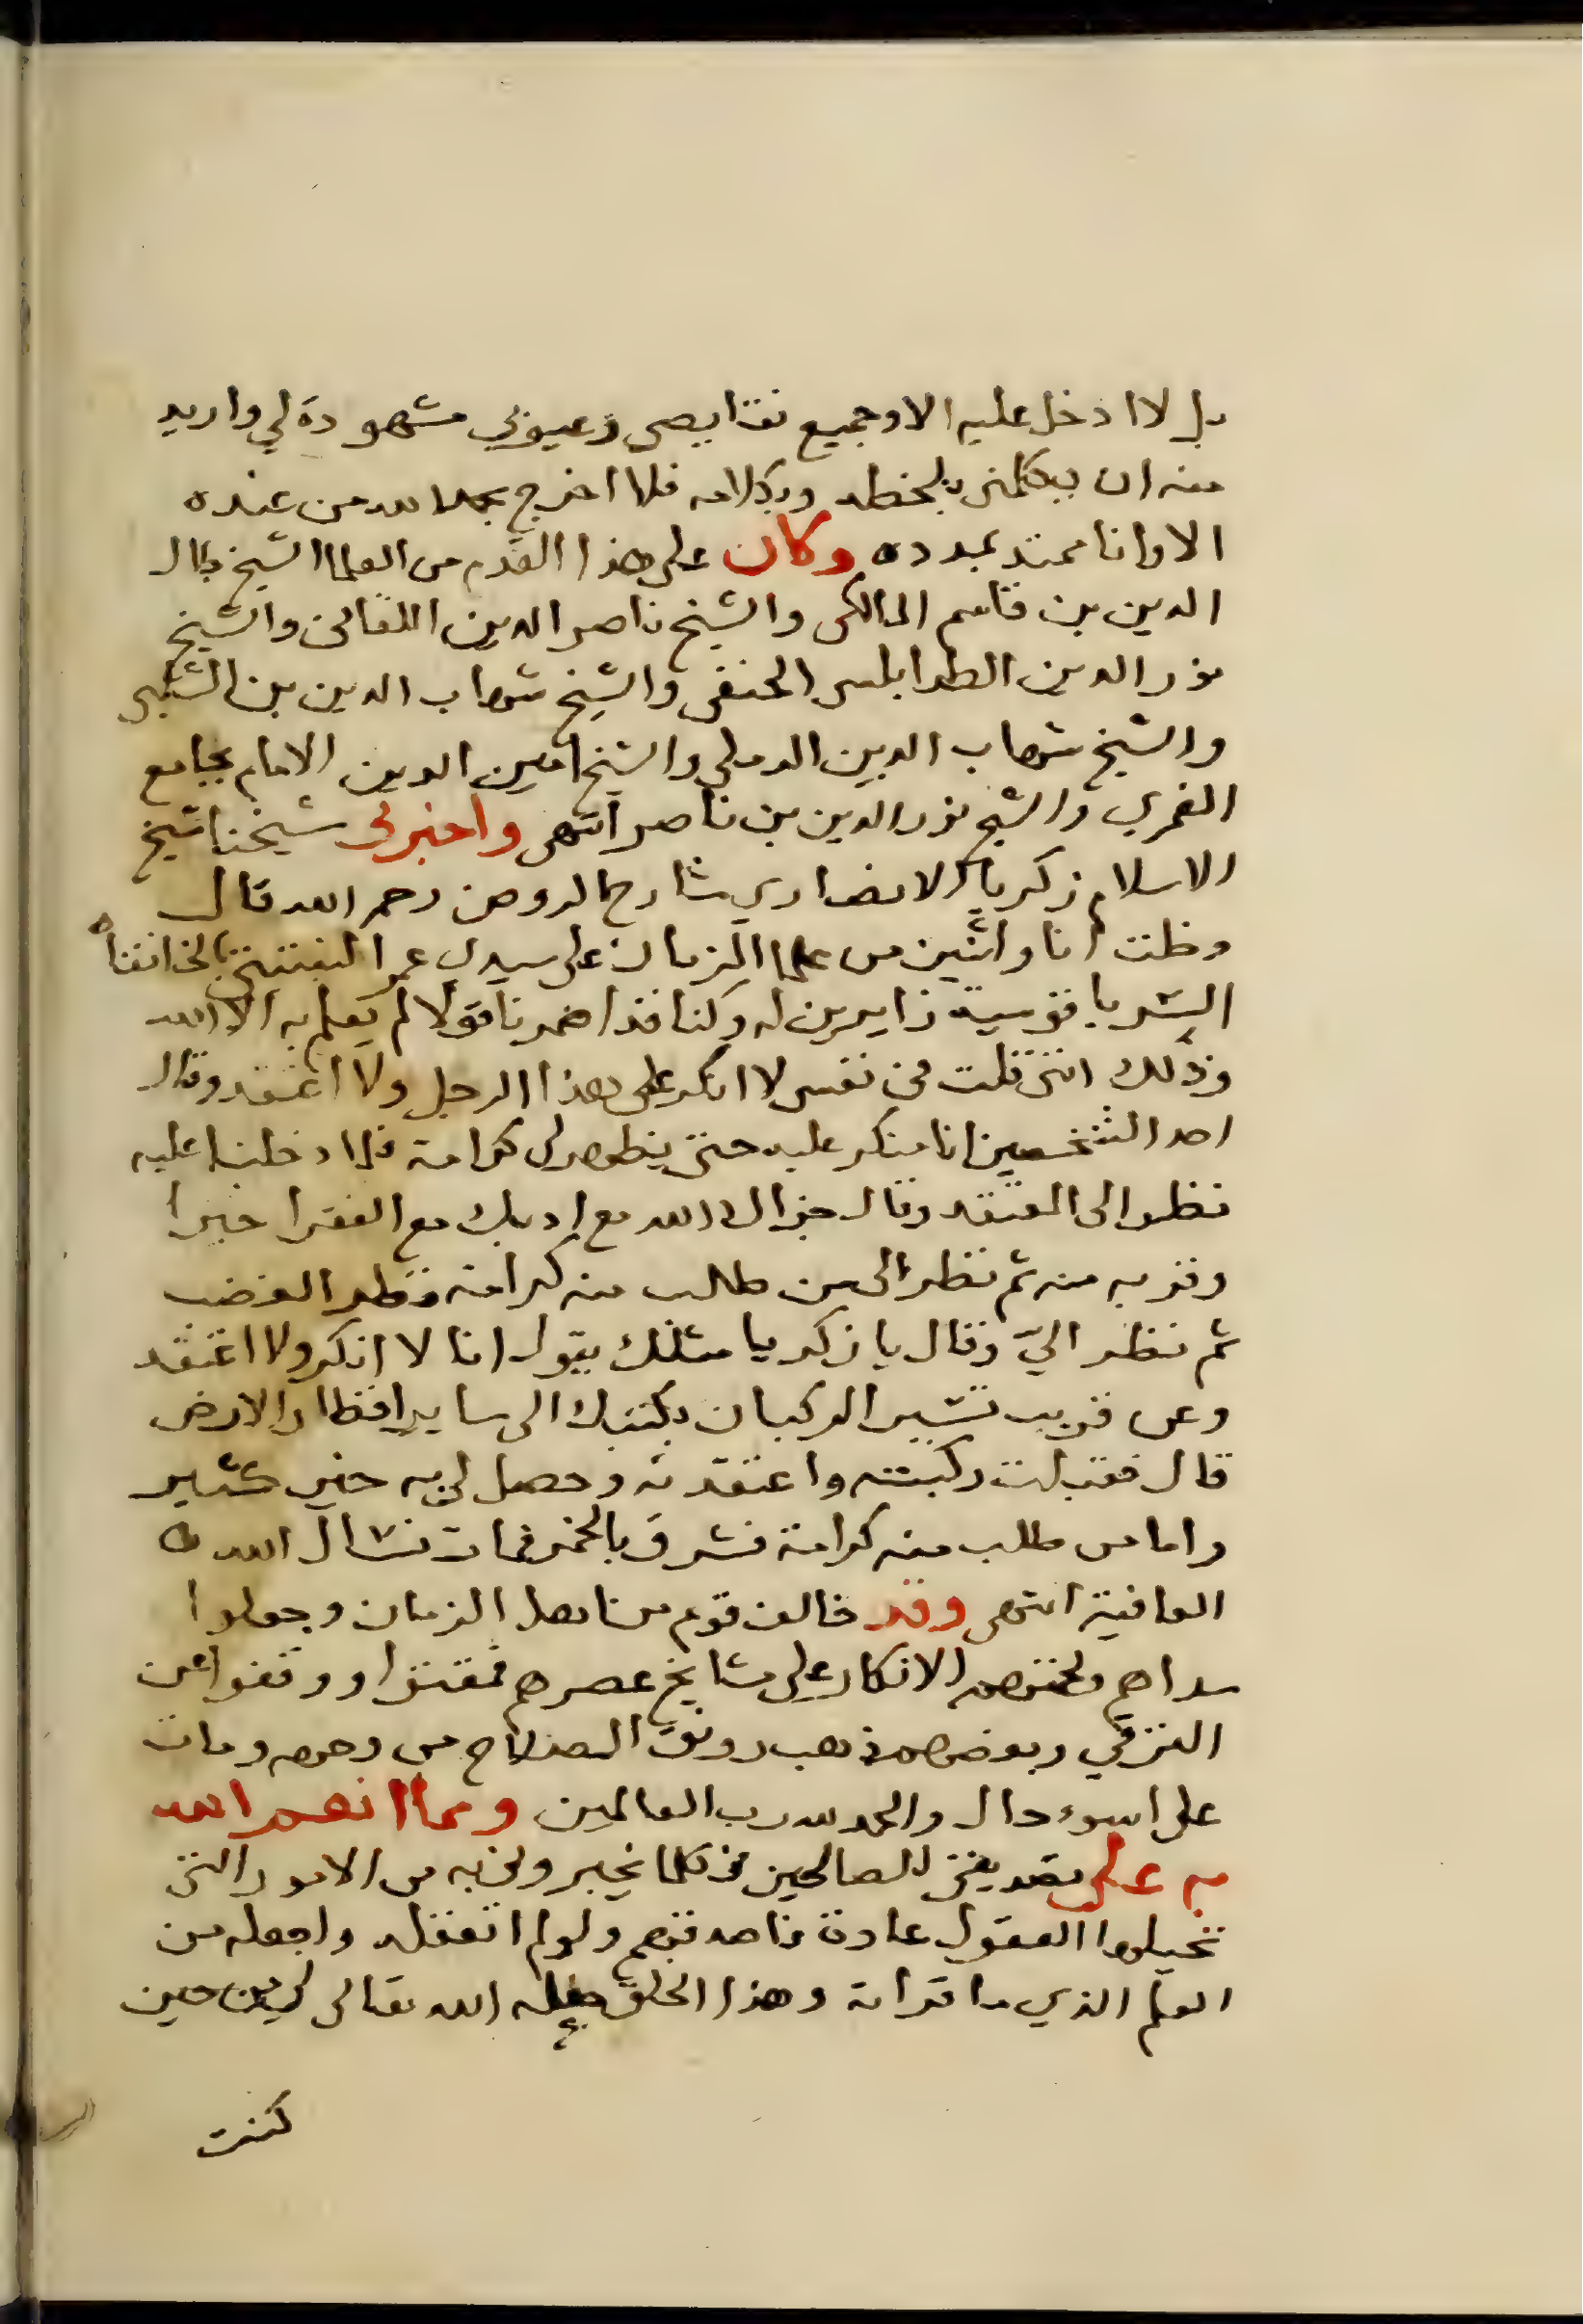 بل لا ادخل عليه الا وجميع نقايصي وعيوبي مشهودة لي واريد
منه ان يكلمني بلحظه وبكلامه فلا اخرج بحمد الله من عنده
الا وانا ممتد بمدده وكان على هذا القدم من العلما الشيخ جلال
الدين بن قاسم المالكي والشيخ ناصر الدين اللقاني والشيخ
نور الدين الطرابلسي الحنفي والشيخ شهاب الدين بن الشلبي
والشيخ شهاب الدين الرملي والشيخ امين الدين الامام بجامع
الغمري والشيخ نور الدين بن ناصر انتهى واخبرني شيخنا شيخ
الاسلام زكريا الانصاري شارح الروض رحمه الله قال
دخلت انا واثنين من علما الزمان على سيدي عمر النبتيتي بالخانقاه
السرياقوسية زايرين له وكنا قد اضمرنا قولا لم يعلم به الا الله
وذلك انني قلت في نفسي لا انكر على هذا الرجل ولا اعتقد وقال
احد الشخصين انا منكر عليه حتى يظهر لي كرامة فلما دخلنا عليه
نظر الى المعتقد وقال جزاك الله مع ادبك مع الفقرا خيرا
وقربه منه ثم نظر الى من طلب منه كرامة نظر الغضب
ثم نظر اليّ وقال يا زكريا مثلك يقول انا لا انكر ولا اعتقد
وعن قريب تسير الركبان بكتبك الى ساير اقطار الارض
قال فقبلت ركبته واعتقدته وحصل لي به خير كثير
واما من طلب منه كرامة فشرق بالخمر فمات نسال الله
العافية انتهى وقد خالف قوم من اهل الزمان وجعلوا
سداهم ولحمتهم الانكار على مشايخ عصرهم فمقتوا ووقفوا عن
الترقي وبعضهم ذهب رونق الصلاح من وجهه ومات
على اسوء حال والحمد لله رب العالمين ومما انعم الله
به على تصديقي للصالحين في كلما يخبروني به من الامور التي
تحيلها العقول عادة فاصدقهم ولو لم اتعقله واجعله من
العلم الذي ما قراته وهذا الخلق جعله الله تعالى لي من حين
كنت